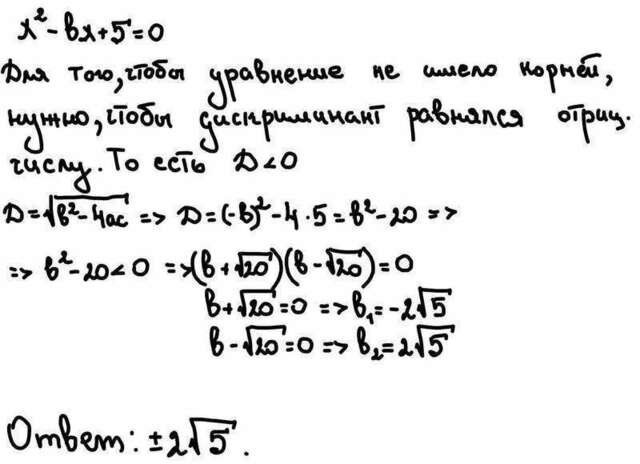 x² - bx + 5 = 0
Для того, чтобы уравнение не имело корней,
нужно, чтобы дискриминант равнялся отриц.
числу. То есть D < 0
D = √(b² - 4ac) => D = (-b)² - 4 · 5 = b² - 20 =>
=> b² - 20 < 0 => (b + √20)(b - √20) = 0
b + √20 = 0 => b₁ = -2√5
b - √20 = 0 => b₂ = 2√5
Ответ: ±2√5.